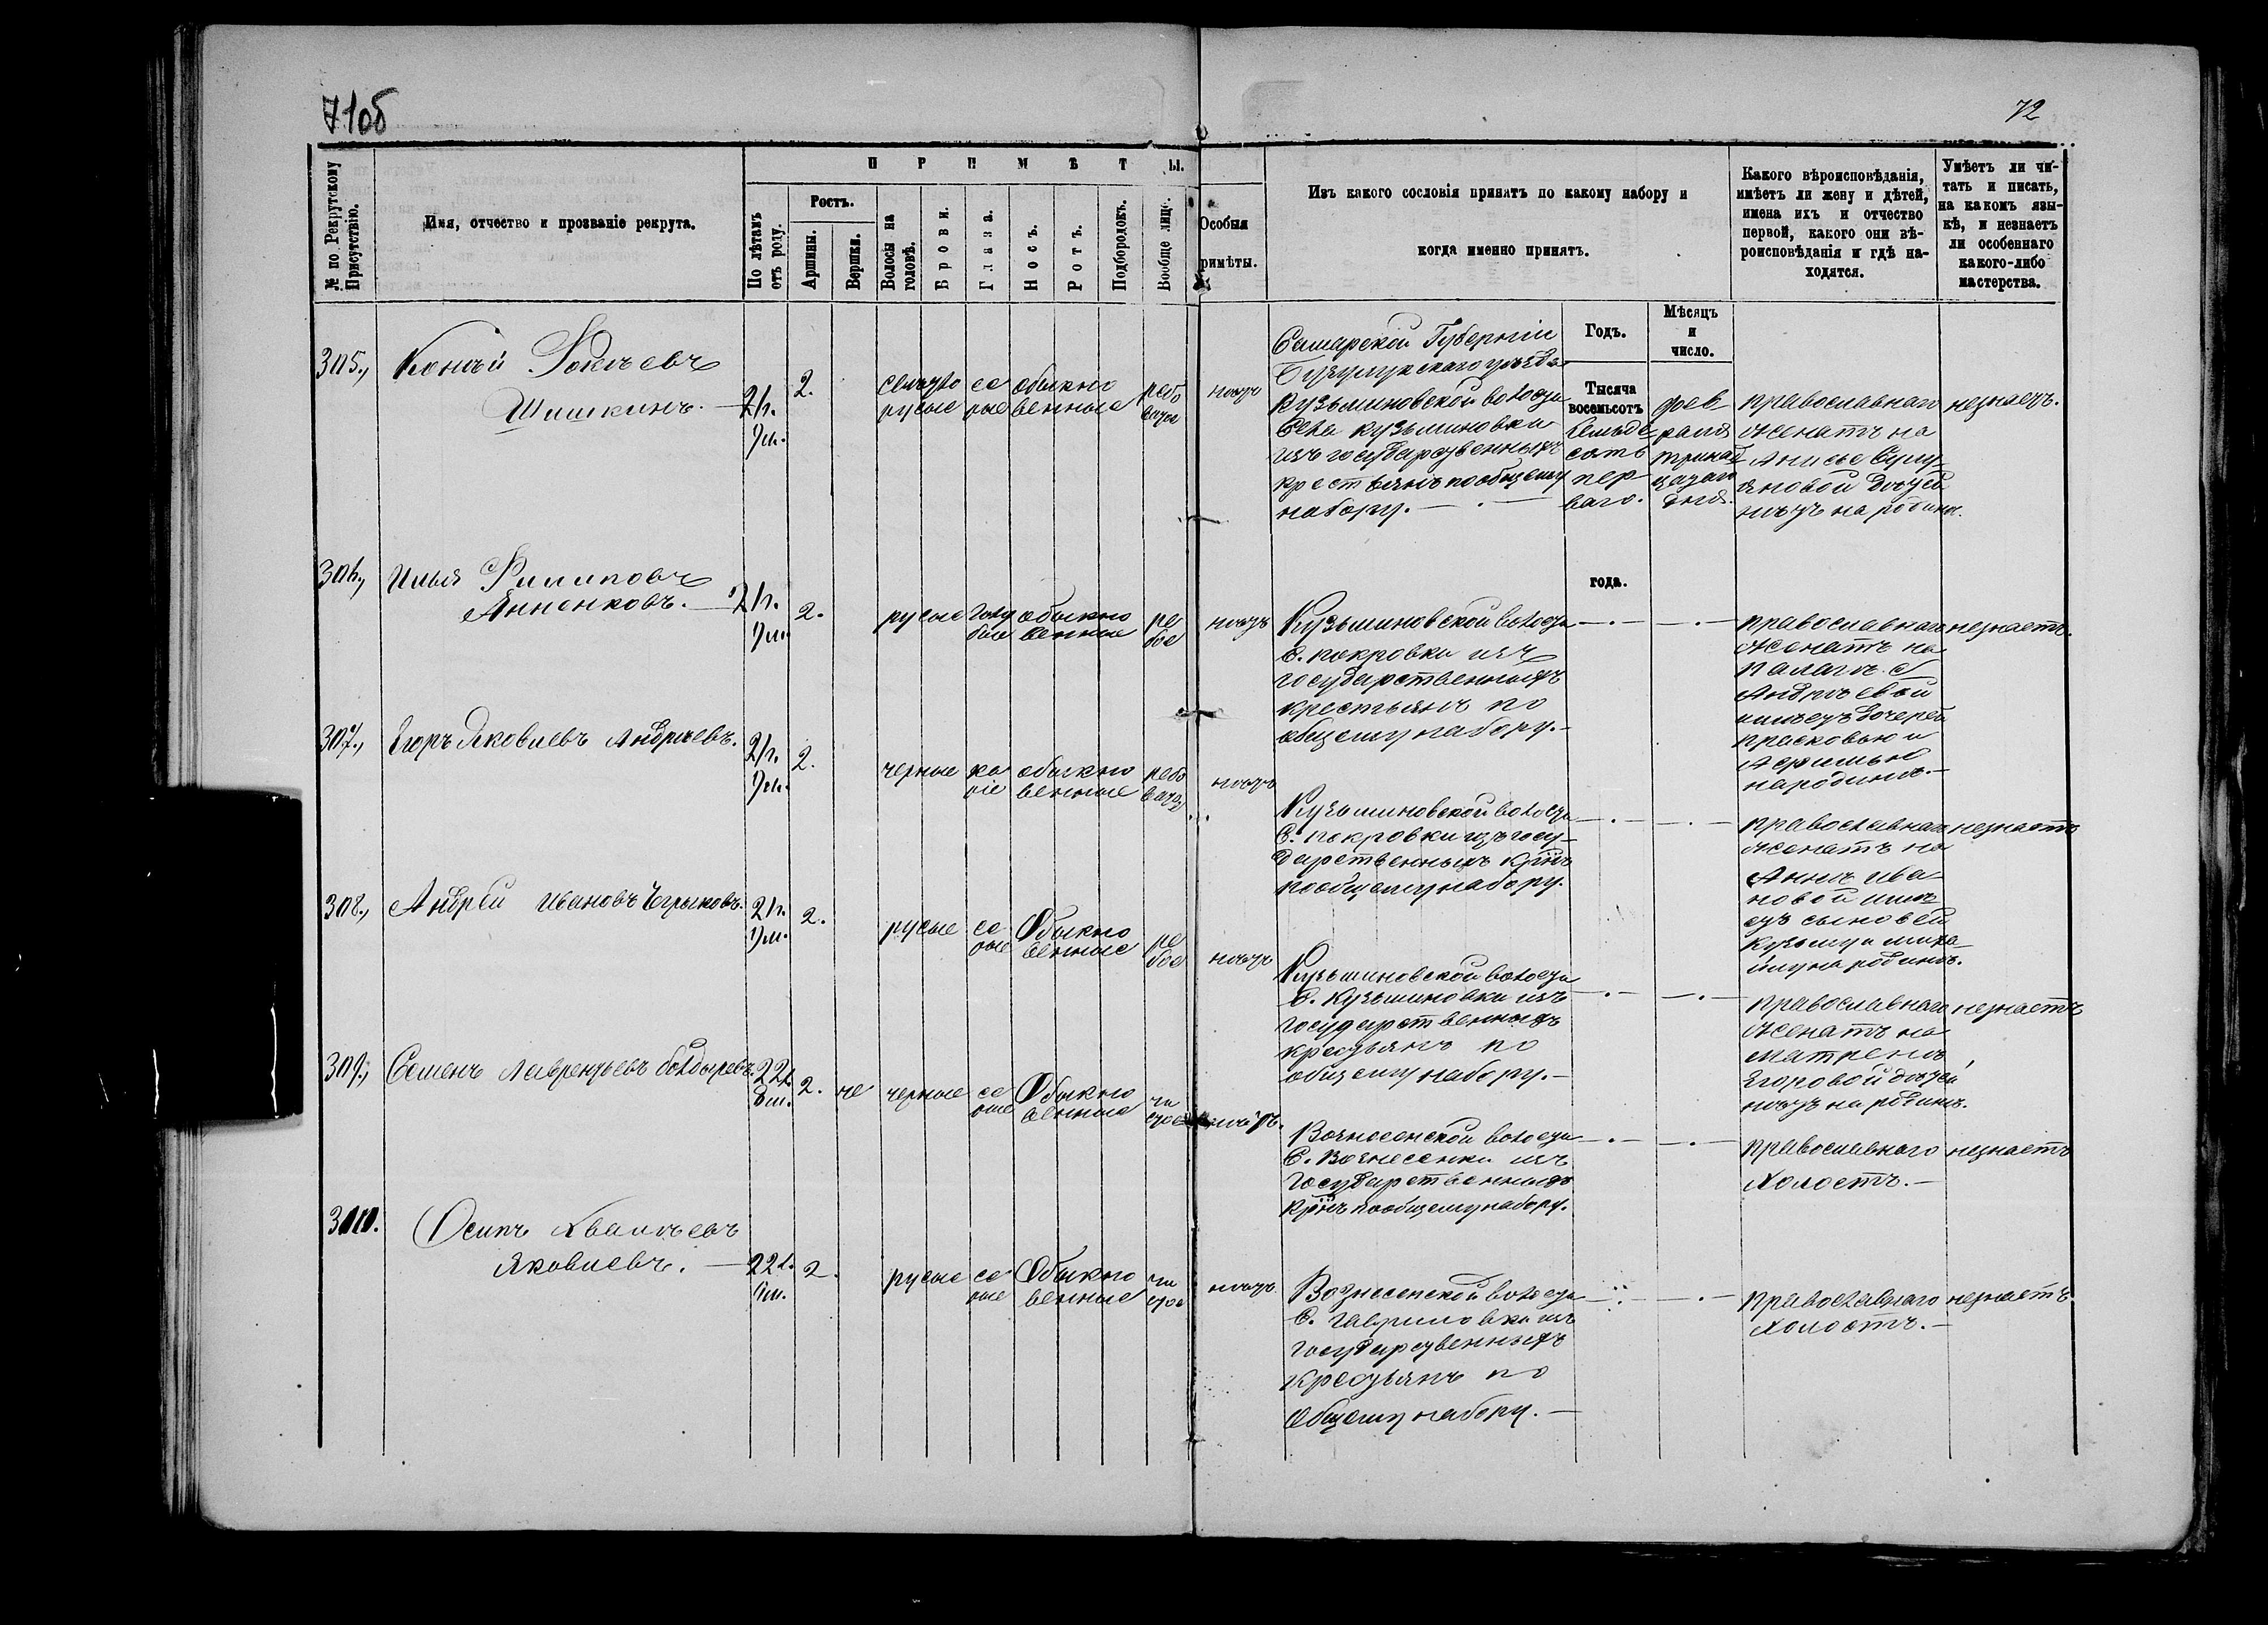 71об
72
П Р И М Ѣ Т Ы.
№ по Рекрутскому Присутствію.
Имя, отчество и прозваніе рекрута.
По лѣтамъ отъ роду.
Ростъ.
Аршины.
Вершки.
Волосы на головѣ.
Брови.
Глаза.
Носъ.
Ротъ.
Подбородокъ.
Вообще лице.
Особыя
римѣты.
Изъ какого сословія принятъ по какому набору и
когда именно принятъ.
Годъ.
Мѣсяцъ
и
число.
Какого вѣроисповѣданія,
имѣетъ ли жену и дѣтей,
имена ихъ и отчество
первой, какого они вѣ-
роисповѣданія и гдѣ на-
ходятся.
Умѣетъ ли чи-
тать и писать,
на какомъ язы-
кѣ, и незнаетъ
ли особеннаго
какого-либо
мастерства.
305.,
Шишкинъ. —
21г.
2.
русые
се
рые
обыкно
венные
рябо
нѣтъ
Самарской Губерніи
Бузулукскаго уѣзда
Кузьминовской волости
Села Кузьминовки
изъ государственныхъ
крестьянъ по общему
набору. —
Тысяча
восемьсотъ
семьде
сятъ
пер
ваго.
фев
раля
тринад
цатаго
дня.
православнаго
женатъ на
дѣтей
нѣтъ на родинѣ.
незнаетъ.
306.,
Илья Филиповъ
Анненковъ. —
21г.
2.
русые
голу
бые
обыкно
венные
ря
бое
нѣтъ
Кузьминовской волости
С. Покровки изъ
государственныхъ
крестьянъ по
общему набору. —
года.
православнаго
женатъ на
Андрѣевой
имѣетъ дочерей
Прасковью и
Афимью
на родинѣ. —
незнаетъ.
307.,
Егоръ Яковлевъ Андрѣевъ.
21г.
2.
черные
ка
ріе
обыкно
венные
рябо
нѣтъ
Кузьминовской волости
С. Покровки изъ госу-
дарственныхъ крнъ
по общему набору.
православнаго
женатъ на
Аннѣ Ива
новой имѣ
етъ сыновей
Кузьму и Миха-
йлу на родинѣ.
незнаетъ
308.,
Андрей Ивановъ
21г.
2.
русые
се
рые
Обыкно
венные
ря
бое
нѣтъ
Кузьминовской волости
С. Кузьминовки изъ
государственныхъ
крестьянъ по
общему набору. —
православнаго
женатъ на
Матренѣ
Егоровой дѣтей
нѣтъ на родинѣ.
незнаетъ
309.,
Семенъ Лаврентьевъ Болдыревъ.
22г.
8м.
2.
че
черные
се
рые
Обыкно
венные
чи
стое
нѣтъ.
Вознесенской волости
С. Вознесенки изъ
Государственныхъ
крнъ по общему набору.
православнаго
холостъ. —
незнаетъ
3010.
Осипъ
Яковлевъ. —
22г.
2.
русые
се
рые
Обыкно
венные
чи
стое
нѣтъ
Вознесенской волости
С. Гавриловки изъ
государственныхъ
крестьянъ по
общему набору. —
православнаго
холостъ. —
незнаетъ